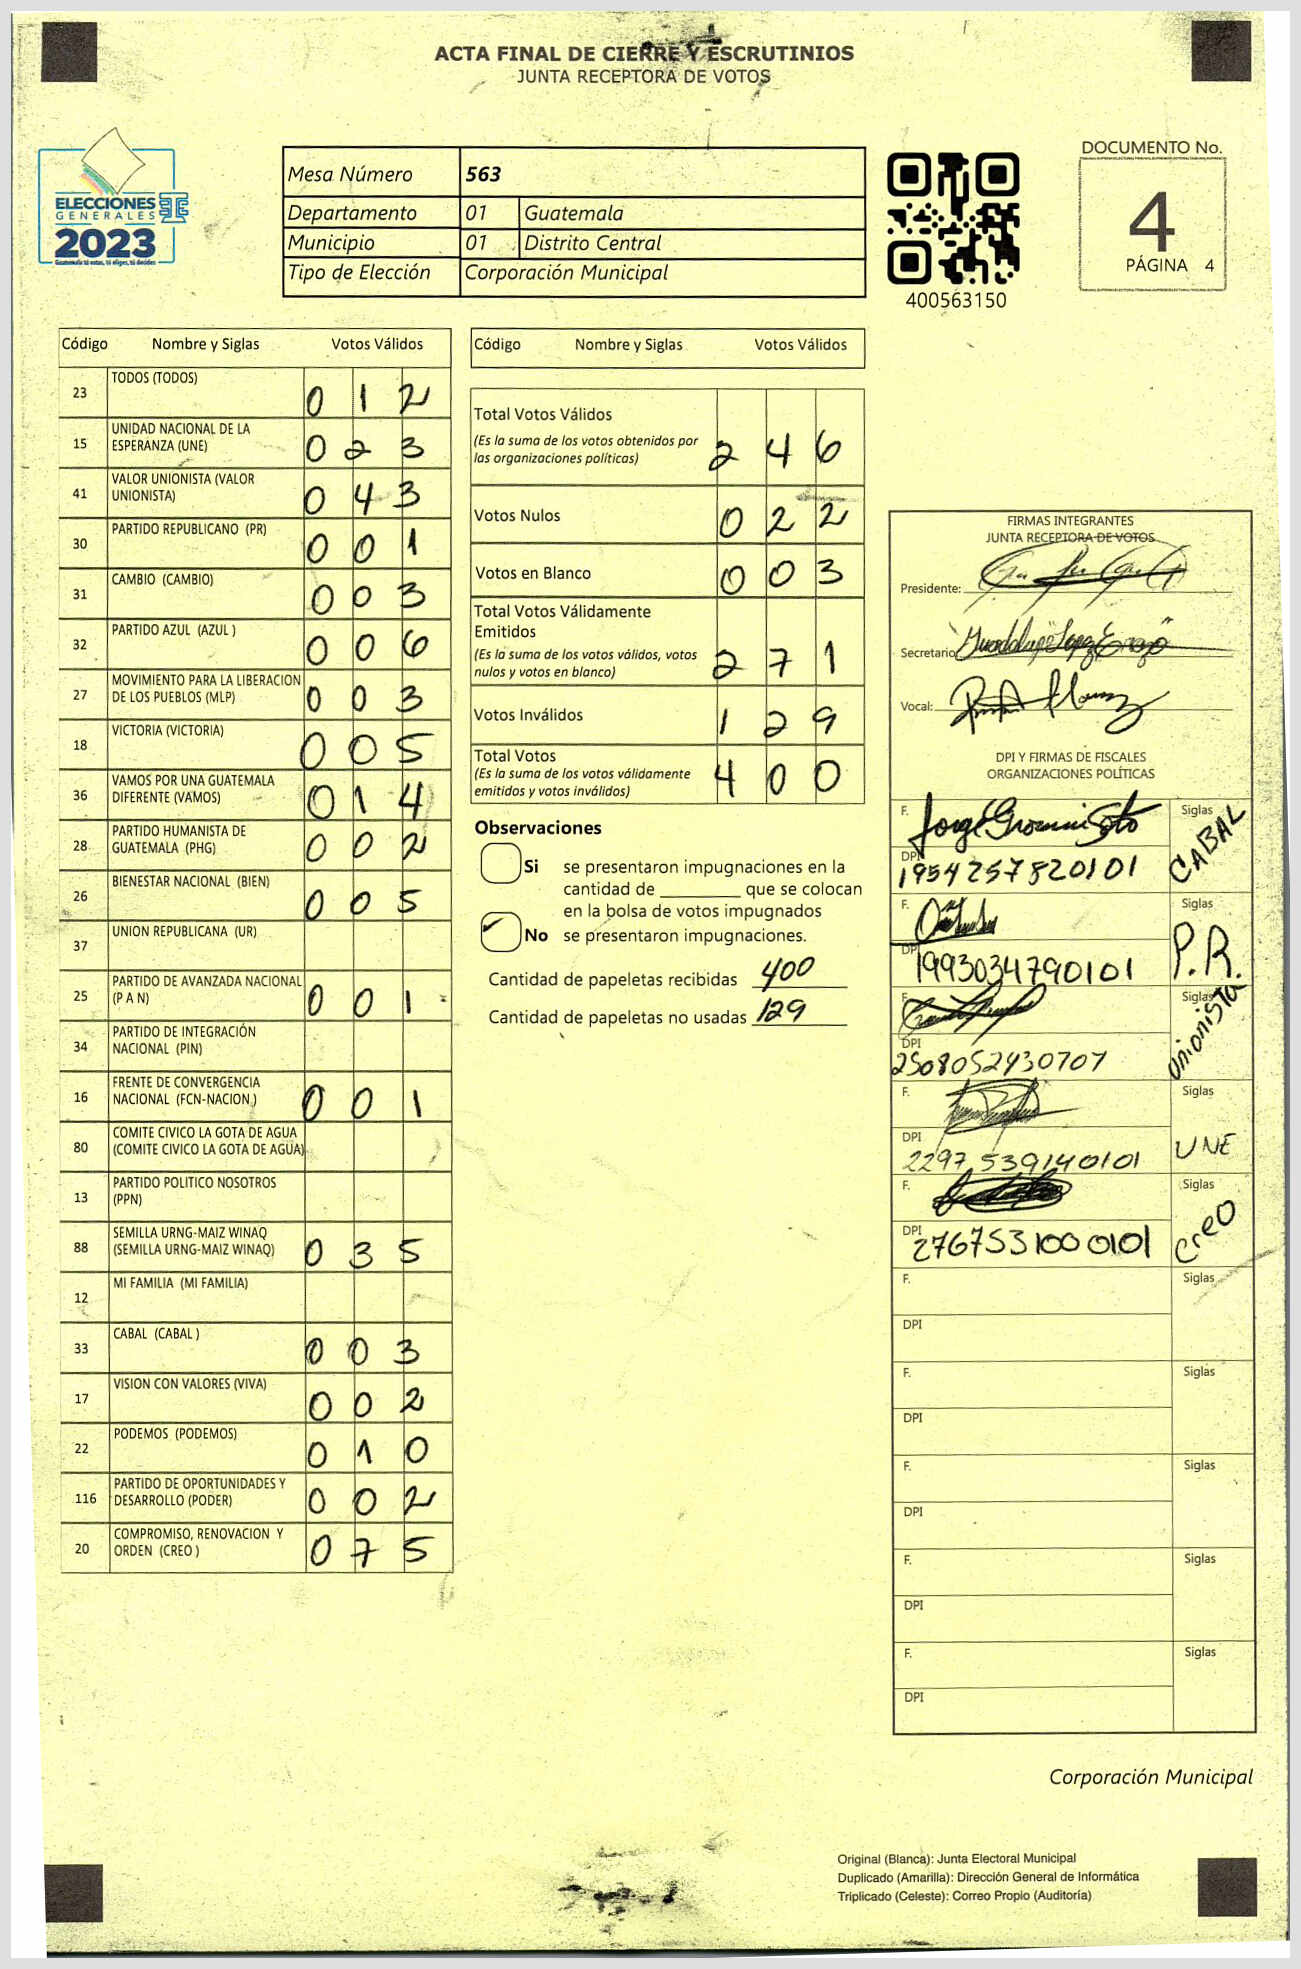 ACTA FINAL DE CIERRE Y ESCRUTINIOS
JUNTA RECEPTORA DE VOTOS
ELECCIONES
GENERALES
2023
Guatemala tú votas, tú eliges, tú decides
Mesa Número 563
Departamento 01 Guatemala
Municipio 01 Distrito Central
Tipo de Elección Corporación Municipal
400563150
DOCUMENTO No.
4
PÁGINA 4
Código Nombre y Siglas Votos Válidos
23 TODOS (TODOS) 0 1 2
15 UNIDAD NACIONAL DE LA
ESPERANZA (UNE) 0 2 3
41 VALOR UNIONISTA (VALOR
UNIONISTA) 0 4 3
30 PARTIDO REPUBLICANO (PR) 0 0 1
31 CAMBIO (CAMBIO) 0 0 3
32 PARTIDO AZUL (AZUL ) 0 0 6
27 MOVIMIENTO PARA LA LIBERACION
DE LOS PUEBLOS (MLP) 0 0 3
18 VICTORIA (VICTORIA) 0 0 5
36 VAMOS POR UNA GUATEMALA
DIFERENTE (VAMOS) 0 1 4
28 PARTIDO HUMANISTA DE
GUATEMALA (PHG) 0 0 2
26 BIENESTAR NACIONAL (BIEN) 0 0 5
37 UNION REPUBLICANA (UR)
25 PARTIDO DE AVANZADA NACIONAL
(P A N) 0 0 1
34 PARTIDO DE INTEGRACIÓN
NACIONAL (PIN)
16 FRENTE DE CONVERGENCIA
NACIONAL (FCN-NACION) 0 0 1
80 COMITE CIVICO LA GOTA DE AGUA
(COMITE CIVICO LA GOTA DE AGUA)
13 PARTIDO POLITICO NOSOTROS
(PPN)
88 SEMILLA URNG-MAIZ WINAQ
(SEMILLA URNG-MAIZ WINAQ) 0 3 5
12 MI FAMILIA (MI FAMILIA)
33 CABAL (CABAL ) 0 0 3
17 VISION CON VALORES (VIVA) 0 0 2
22 PODEMOS (PODEMOS) 0 1 0
116 PARTIDO DE OPORTUNIDADES Y
DESARROLLO (PODER) 0 0 2
20 COMPROMISO, RENOVACION Y
ORDEN (CREO ) 0 7 5
Código Nombre y Siglas Votos Válidos
Total Votos Válidos
(Es la suma de los votos obtenidos por
las organizaciones políticas) 2 4 6
Votos Nulos 0 2 2
Votos en Blanco 0 0 3
Total Votos Válidamente
Emitidos
(Es la suma de los votos válidos, votos
nulos y votos en blanco) 2 7 1
Votos Inválidos 1 2 9
Total Votos
(Es la suma de los votos válidamente
emitidos y votos inválidos) 4 0 0
Observaciones
Si se presentaron impugnaciones en la
cantidad de ________ que se colocan
en la bolsa de votos impugnados
No se presentaron impugnaciones.
Cantidad de papeletas recibidas 400
Cantidad de papeletas no usadas 129
FIRMAS INTEGRANTES
JUNTA RECEPTORA DE VOTOS
Presidente:
Secretario
Vocal:
DPI Y FIRMAS DE FISCALES
ORGANIZACIONES POLÍTICAS
F. Siglas
CABAL
DPI 1954257820101
F. Siglas
P.R.
DPI 1993034790101
F. Siglas
Unionista
DPI
2508052430707
F. Siglas
UNE
DPI
2297 539140101
F. Siglas
CreO
DPI 2767531000101
F. Siglas
DPI
F. Siglas
DPI
F. Siglas
DPI
F. Siglas
DPI
F. Siglas
DPI
Corporación Municipal
Original (Blanca): Junta Electoral Municipal
Duplicado (Amarilla): Dirección General de Informática
Triplicado (Celeste): Correo Propio (Auditoría)